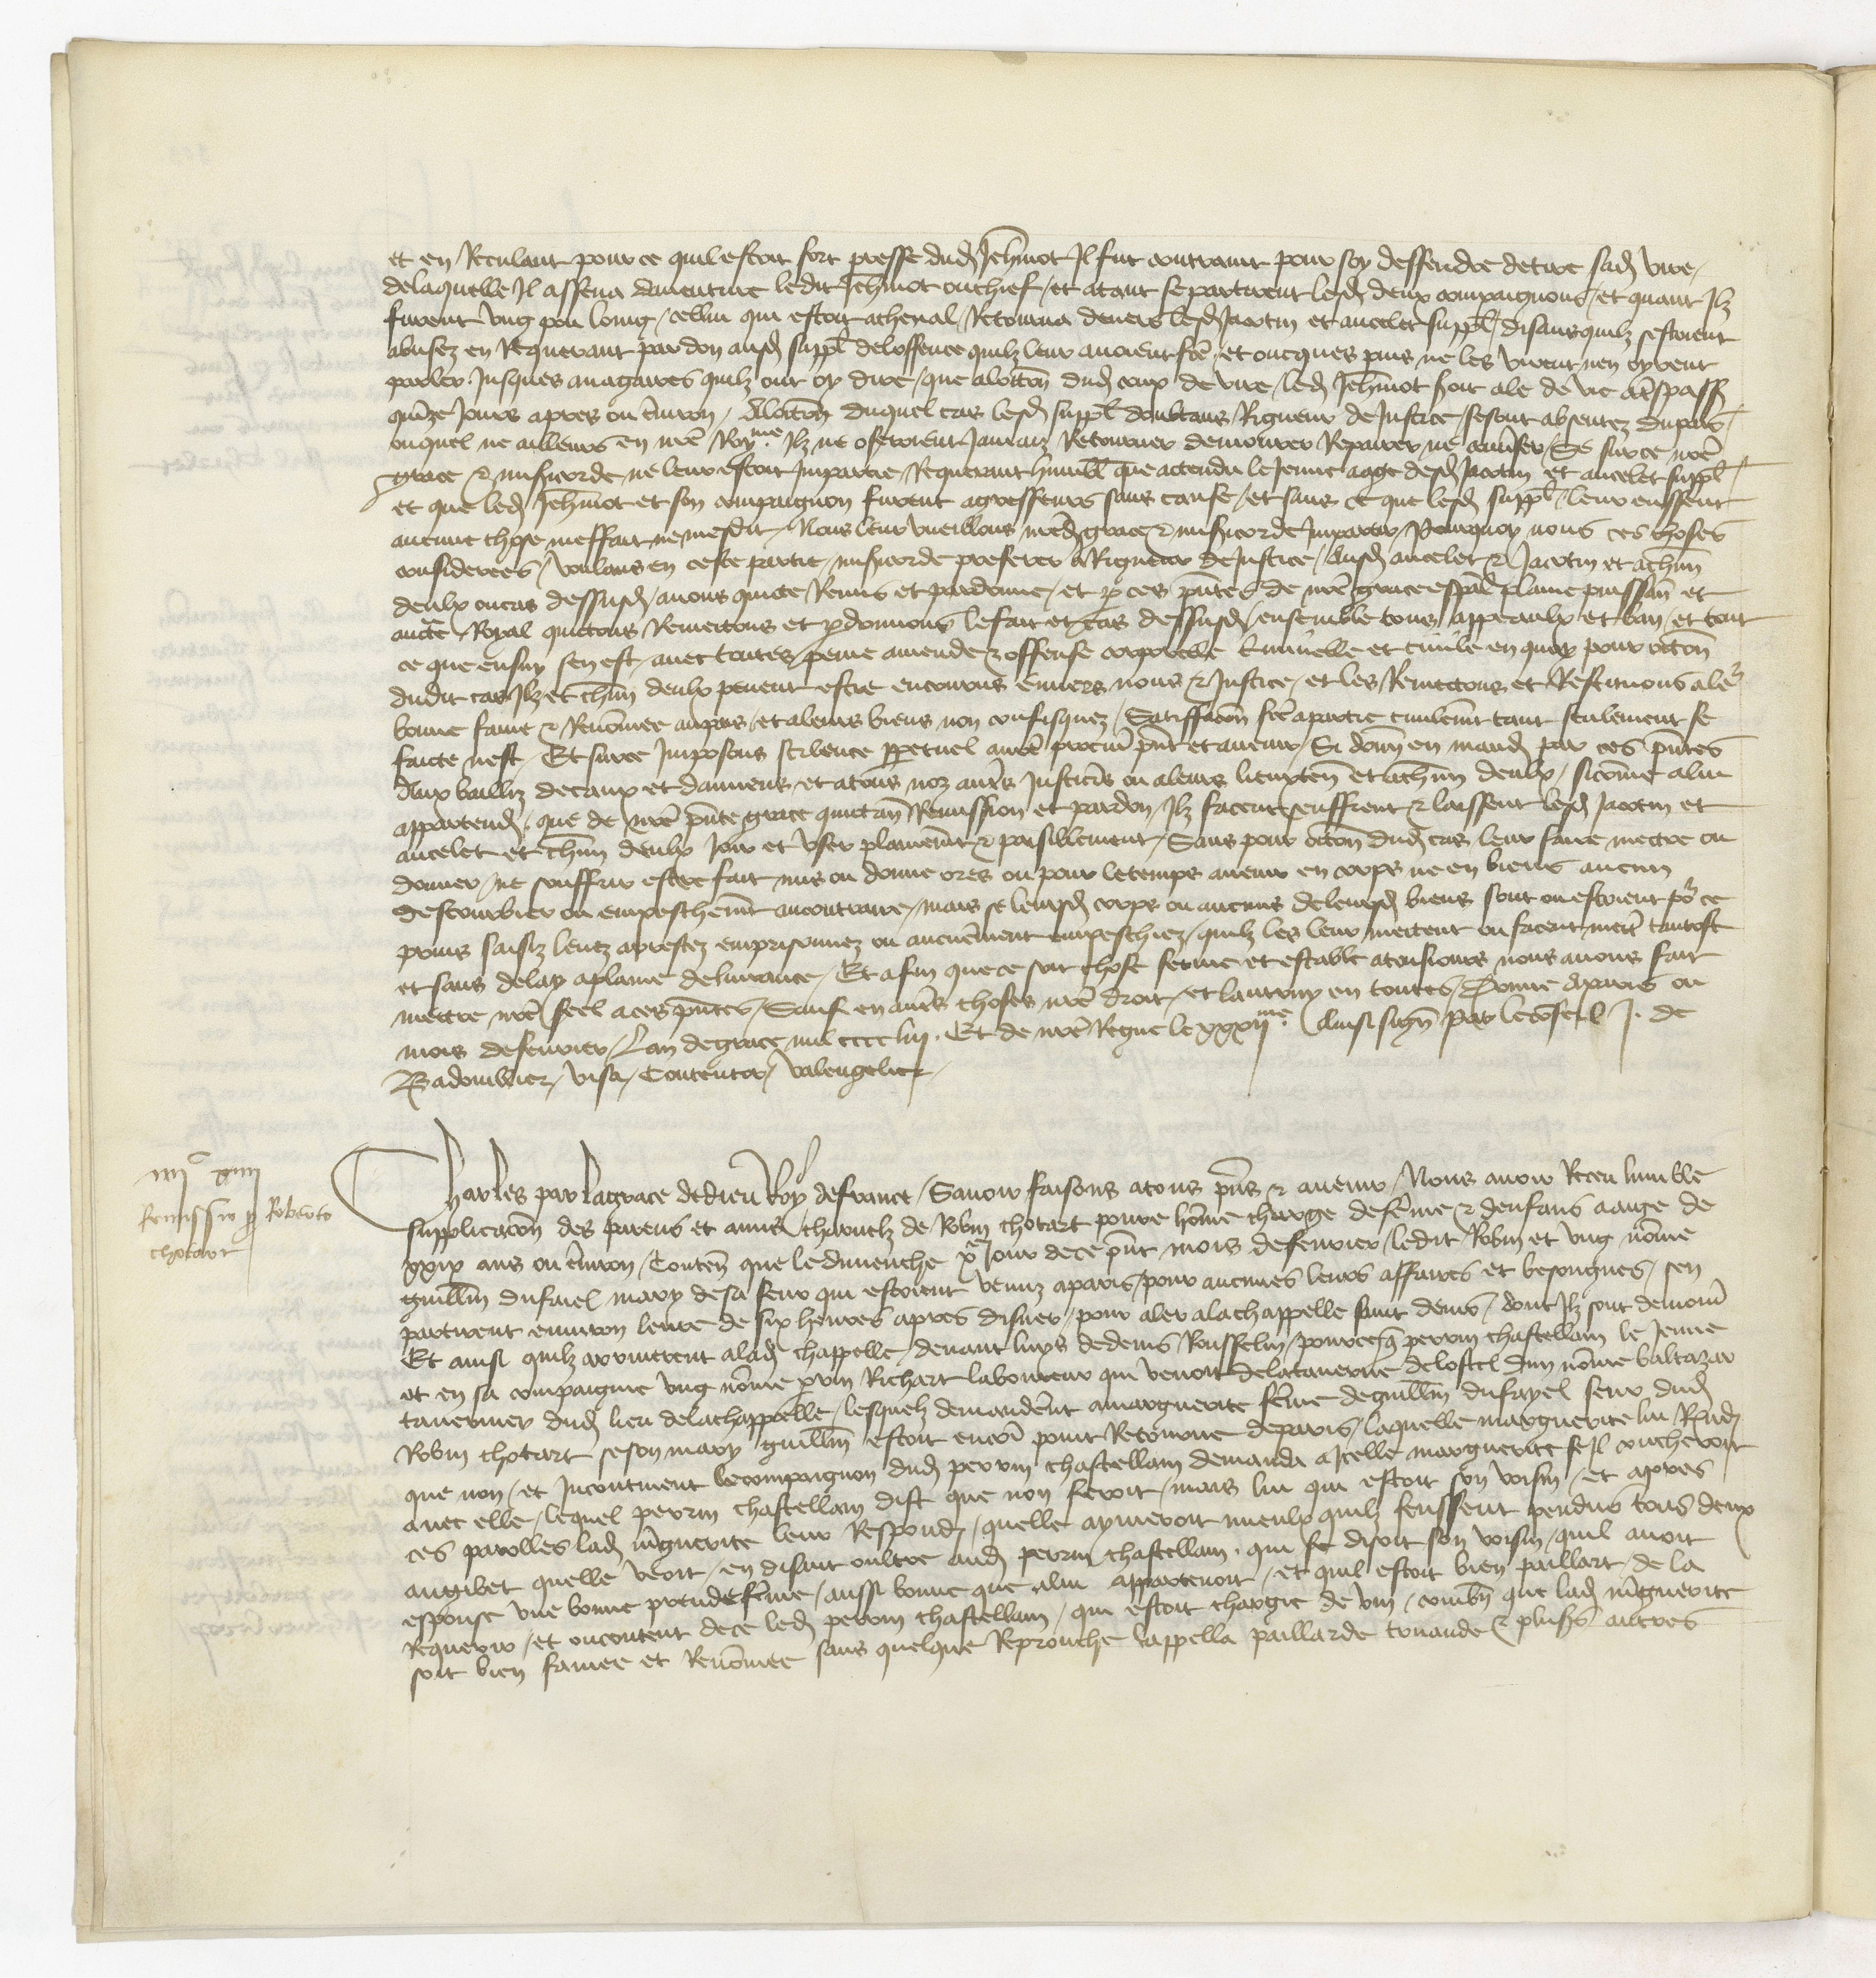 et en Reculant pource quil estoit fort presse dud Jehannot Il fut contraint pour soy deffendre de tirer sad vire
de laquelle Il assena daventure ledit Jehannot ou chief / et atant se partirent lesd deux compaignons / et quant Ilz
furent ung pou loing / cellui qui estoit a cheval / Retourna devers lesd Jacotin et ancelet suppl / disant quilz sestoient
abusez en Requerant pardon ausd suppl de loffence quilz leur avoient fce / et oncques puis ne les virent nen oyrent
parler Jusques anagaires quilz ont oy dire / que aloccon dud coup de vire / led Jehannot soit ale de vie a trespass
quinze Jours apres ou environ / Aloccon duquel cas lesd suppl doubtans Rigueur de Justice / se sont absentez du pais /
ouquel ne ailleurs en nre Roy.me Ilz ne oseroient Jamais Retourner demourer Repairer ne converser / Se sur ce nre
grace & misericorde ne leur estoit Impartie / Requerant humbl que actendu le Jeune aage desd Jacotin et ancelet suppl /
et que led Jehannot et son compaignon furent agresseurs sans cause / et sans ce que lesd suppl / leur eussent
aucune chose meffait ne mesdit / Nous leur vueillons nred grace & misericorde Impartir / Pourquoy nous ces choses
considerees / voulans en ceste partie / misericorde preferer a Rigueur de Justice / Ausd ancelet & Jacotin et a chun
deulx ou cas dessusd / avons quicte Remis et pardonne / et p ces pntes de nre grace espal plaine puissan et
aucte Royal quictons Remectons et pdonnons le fait et cas dessusd / ensemble tous appeaulx et ban / et tout
ce que ensuy sen est / avec toutes / peine amende & offense corporelle criminelle et civile en quoy pour occon
dudit cas Ilz et chun deulx pevent estre encouruz envers nous & Justice / et les Remectons et Restituons a leur
bonne fame & Renommee au pais / et a leurs biens non confisquez / Satisfaccon fce a partie civilement tant seulement se
faicte nest / Et sur ce Imposons scilence ppetuel a nre procur pnt et avenir / Si donn en mand par ces pntes
Aux bailliz de caux et damiens / et a tous noz autres Justiciers ou a leurs lieuxten et a chun deulx / sicomme a lui
appartend / que de nre pnte grace quictan Remission et pardon / Ilz facent seuffrent & laissent lesd Jacotin et
ancelet et chun deulx Joir et user plainement & paisiblement / Sans pour occon dud cas leur faire mectre ou
donner / ne souffrir estre fait mis ou donne ores ou pour le temps avenir en corps ne en biens aucun
destourbier ou empeschemt au contraire / mais se leursd corps ou aucuns de leursd biens sont ou estoient pour ce
prins saisiz levez arrestez emprisonnez ou aucunement empeschiez / quilz les leur mectent ou facent mectre tantost
et sans delay a plaine delivrance / Et afin que ce soit chose ferme et estable a tousiours nous avons fait
mectre nre seel a ces pntes / Sauf en autres choses nre droit / et lautruy en toutes / Donne a paris ou
mois de fevrier / Lan de grace mil cccc liij . Et de nre Regne le xxxijme. Ainsi sign Par le conseil J. de
Badouillier / Visa / Contentor / Valengelier /

iiijc xiiij
Remissio p Roberto
chotart

Charles par la grace de dieu Roy de france / Savoir faisons a tous pns & avenir / Nous avoir Receu lumble
supplicacon des parens et amis charnelz de Robin chotart povre homme charge de femme & denfans aage de
xxix ans ou environ / Conten que le dimenche xe Jour de ce pnt mois de fevrier / ledit Robin et ung nomme
guillm du fuiel mary de sa seur qui estoient venuz a paris / pour aucunes leurs affaires et besongnes / sen
partirent environ leure de six heures apres disner / pour aler a la chappelle saint denis / dont Ilz sont demour
Et ainsi quilz arriverent a lad chappelle / devant luys de denis Rousselin / pource q perrin chastellain le Jeune
et en sa compaignie ung nomme perrin Richart laboureur qui venoit de la taverne de lostel dun nomme baltazar
tavernier dud lieu de la chappelle / lesquelz demanderent a marguerite femme de guillm du fayel seur dud
Robin chotart se son mary guillm estoit encore point Retourne de paris / laquelle marguerite lui Rend
que non / et Incontinent le compaignon dud perrin chastellain demanda a Icelle marguerite se Il coucheroit
avec elle / lequel perrin chastellain dist que non feroit / mais lui qui estoit son voisin / et apres
ces parolles lad marguerite leur Respond / quelle aymeroit mieulx quilz feussent penduz tous deux
au gibet quelle veoit / en disant oultre aud perrin chastellain . qui se disoit son voisin / quil avoit
espouse une bonne preude femme / aussi bonne que a lui appartenoit / et quil estoit bien paillart / de la
Requerir / et oucontent de ce led perrin chastellain / qui estoit chargie de vin / combn que lad marguerite
soit bien famee et Renommee sans quelque Reprouche lappella paillarde truande & plusrs autres